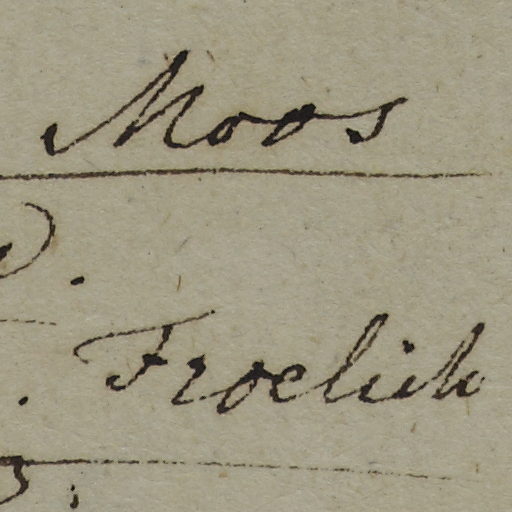 Moos
D.
. Froelich
3;